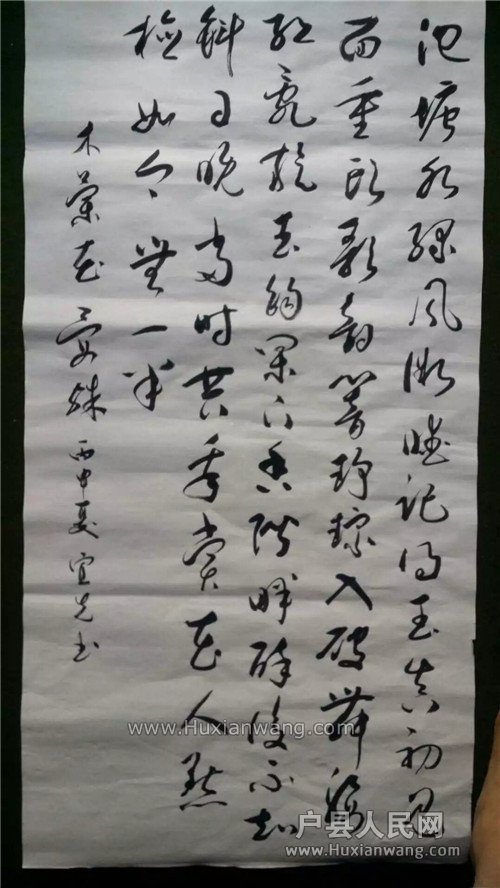 池塘水绿风微暖记得玉真初见
面重头歌韵响琤琮入破舞腰
红乱旋玉钩阑下香阶畔醉後不知
斜日晚当时共我赏花人点
检如今無一半
木兰花 晏殊 丙申夏 宜先书
www.Huxianwang.com
户县人民网
www.Huxianwang.com